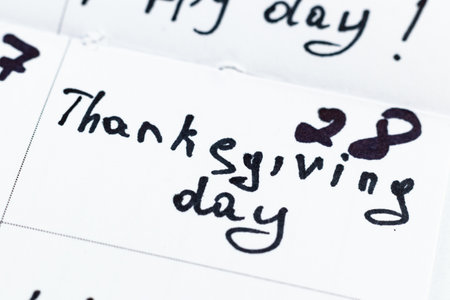 day!
7
28
Thanksgiving
day